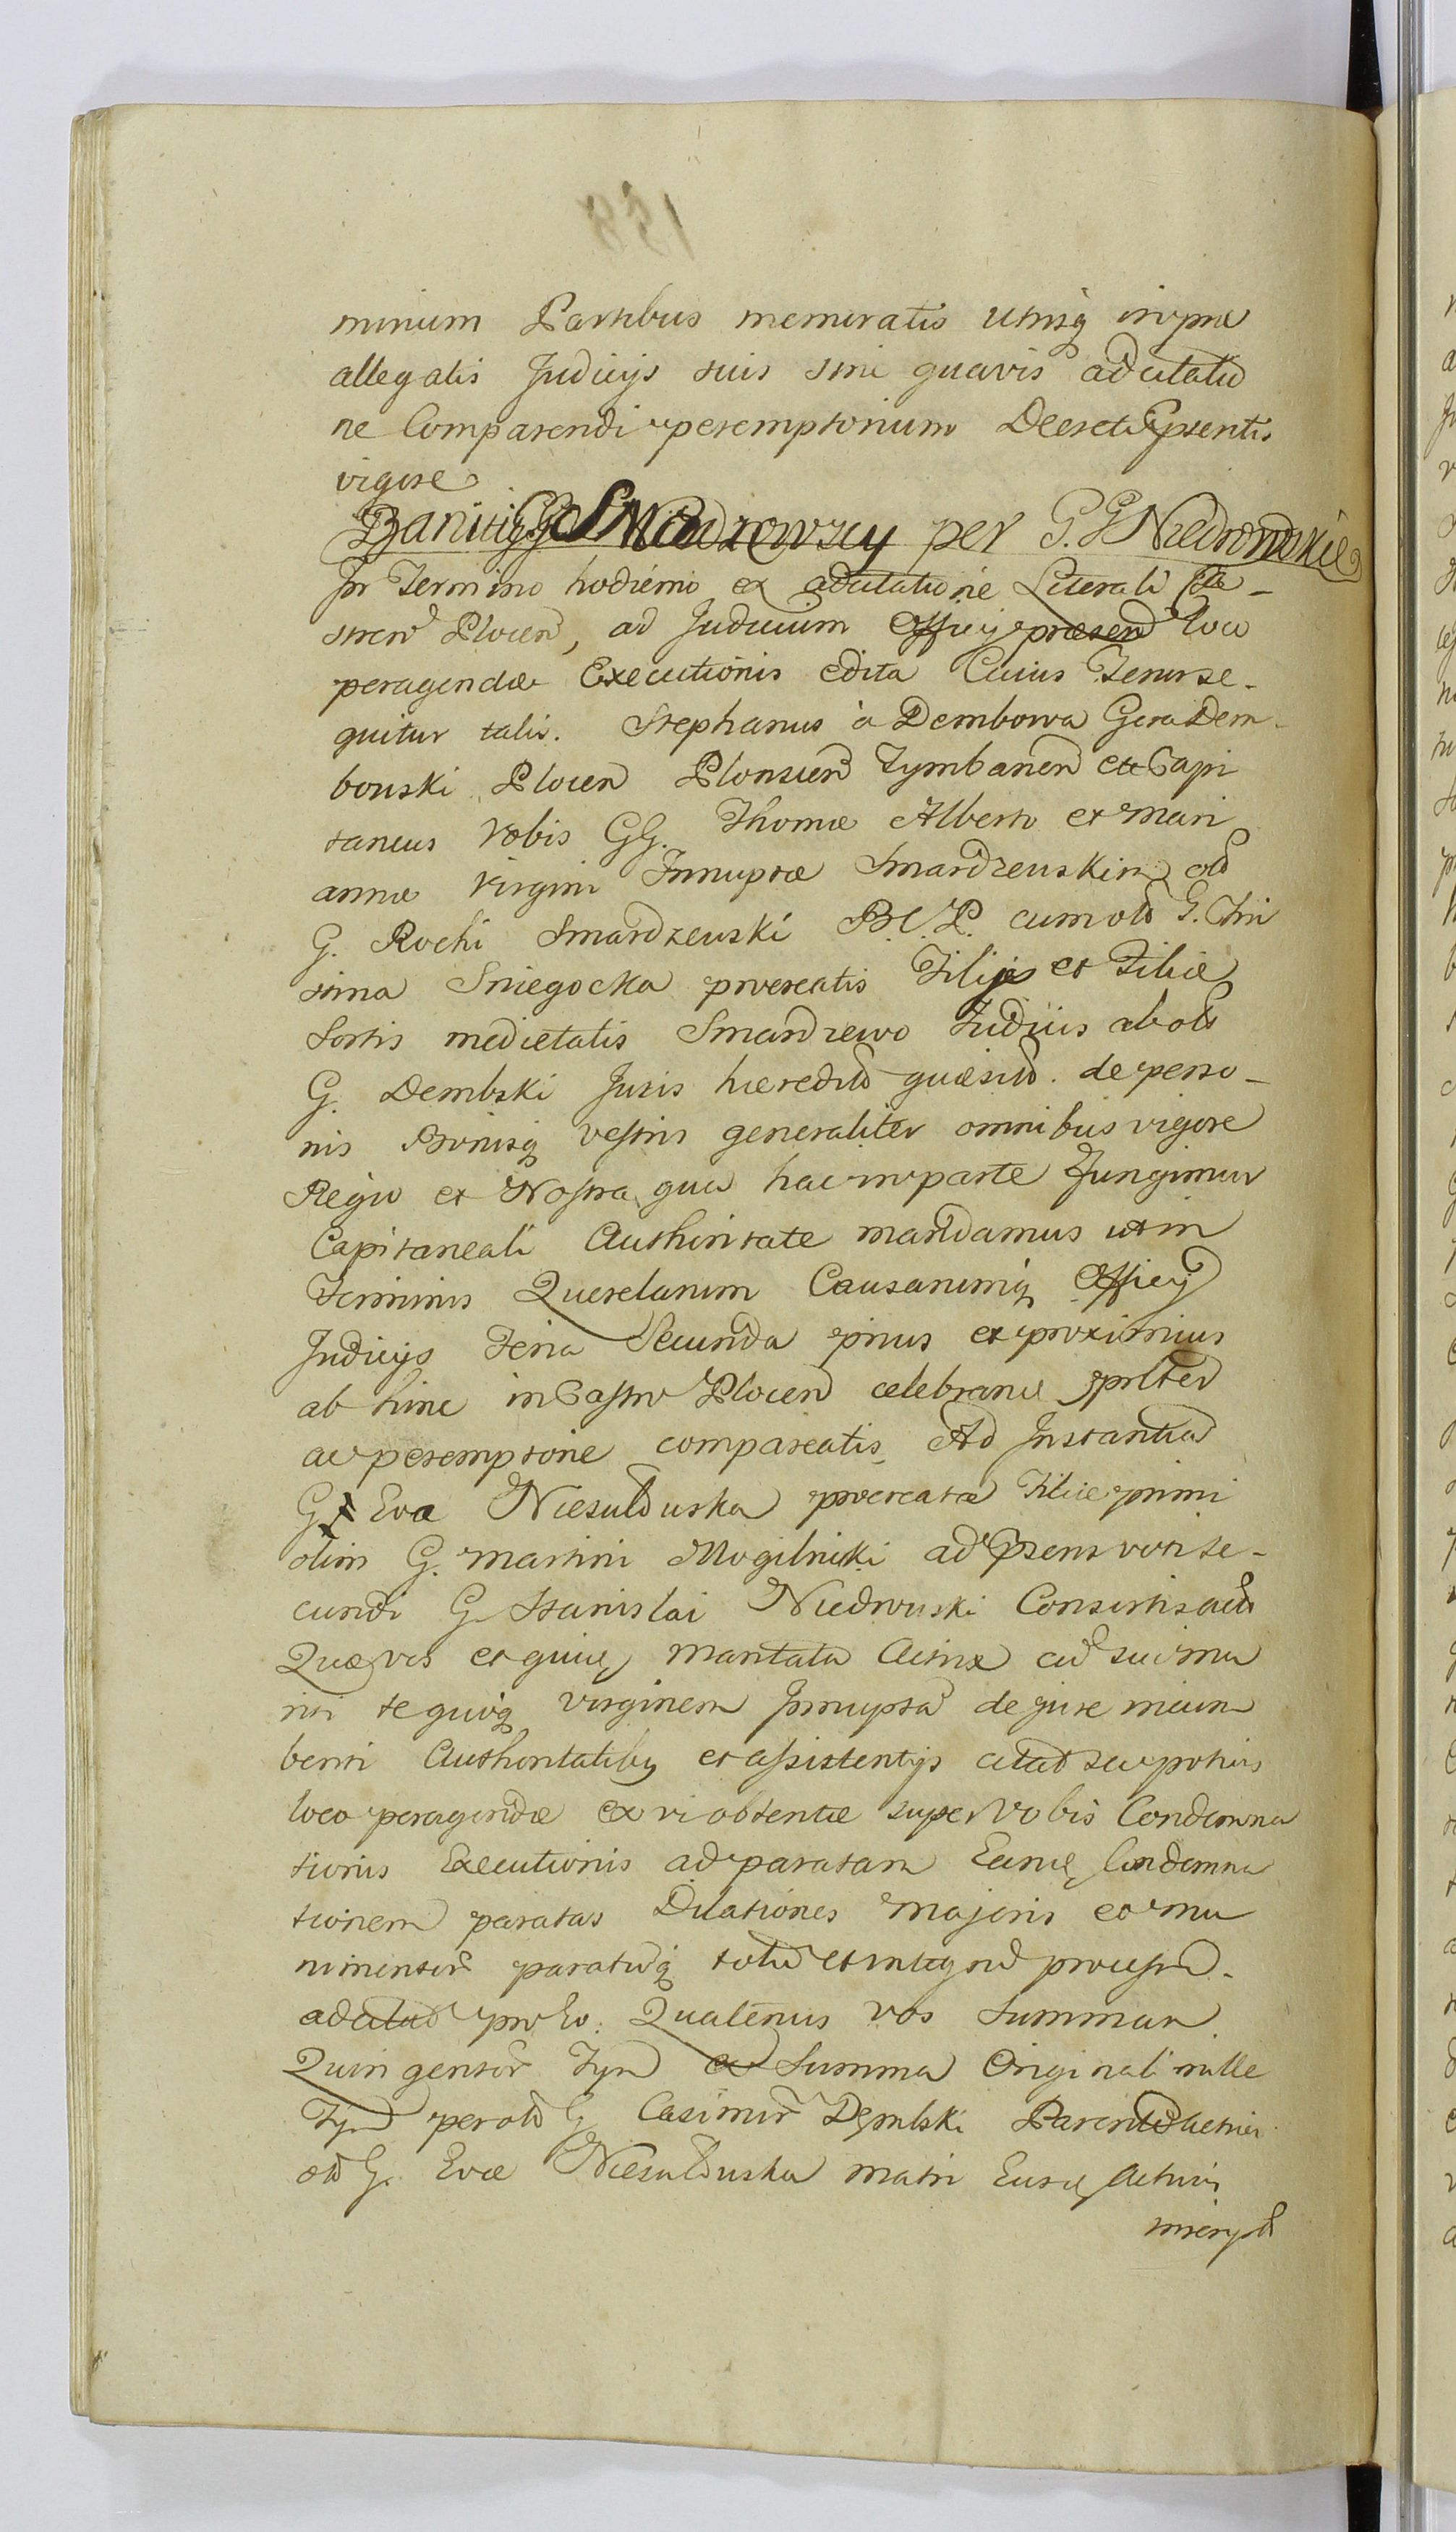 minum Partibus memoratis utrisq in pne
allegatis Judicijs suis sine quavis adcitatio
ne Comparendi peremptorium Decreti Psentis
vigore
Baniti GG Smardzewscy per G.G Niedrowskie
In Termino hodierno ex adcitatione Literali Ca-
stren Plocen, ad Judicium Officij præsen loco
peragendæ Executionis edita Cuius Tenor se-
quitur talis. Stephanus à Dembowa Gora Dem-
bowski Plocen Plonscen Tymbarien etc Capi
taneus Vobis GG. Thomæ Alberto et Mari
annæ Virgini Innuptæ Smardzewskim old
G. Rochi Smardzewski B.C.P. cum old G. Chri
stina Sniegocka procreatis Filijs et Filiæ
Sortis medietatis Smardzewo Ludiiis ab old
G. Dembski Juris hæredito quæsito. de perso-
nis Bonisq vestris generaliter omnibus vigore
Regio et Nostra qua hac in parte fungimur
Capitaneali Authoritate mandamus ut in
Terminis Querelarum Causarumq Officij
Judicijs Feria Secunda prius et proximius
ab hinc in Castro Plocen celebran prlter
ac peremptorie compareatis Ad Instantia
G Eva Niesulowska procreatæ Filiæ primi
olim G. Martini Mogilnicki ad Psens voti se-
cundi G Stanislai Niedrowski Consortis
Quævis et quiuq maritata Actrix ad sui ma
riti te quoq virginem Innupta de jure incum
benti Authoritatibq et assistentijs citat seu potius
loco peragendæ ex vi obtentæ super Vobis Condemna
tionis Executionis ad paratam Eamq Condemna
tionem paratas Dilationes Majoris et mu
nimentor paratuq totu et integru processu.
adcitat pro Eo. Quatenus vos Summam
Quingentor Tyn ex Summa Originali mille
Tyn per old G Casimir Dembski Parente
old G. Evæ Niesulowska matri Eiusq Actricis
inscrypt